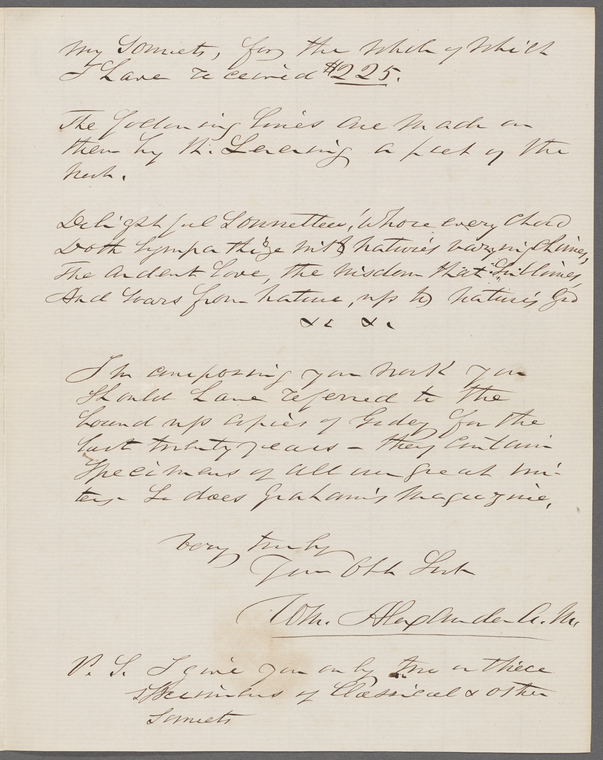 My Sonnets, for the whole of which
I have received $225.
The following lines are made on
them by R. Levering a poet of the
West.
Delightful Sonnetteer, whose every chord
Doth sympathize with nature's varying chime,
The ardent love, the wisdom that sublimes,
And soars from nature, up to nature's God
&c &c.
In composing your work you
should have referred to the
bound up copies of Godey for the
last twenty years – they contain
specimens of all our great wri-
ters – So does Graham's Magazine.
Very truly
Your Obt Svt
Wm. Alexander A. M.
P. S. I give you only two or three
specimens of Classical & other
Sonnets